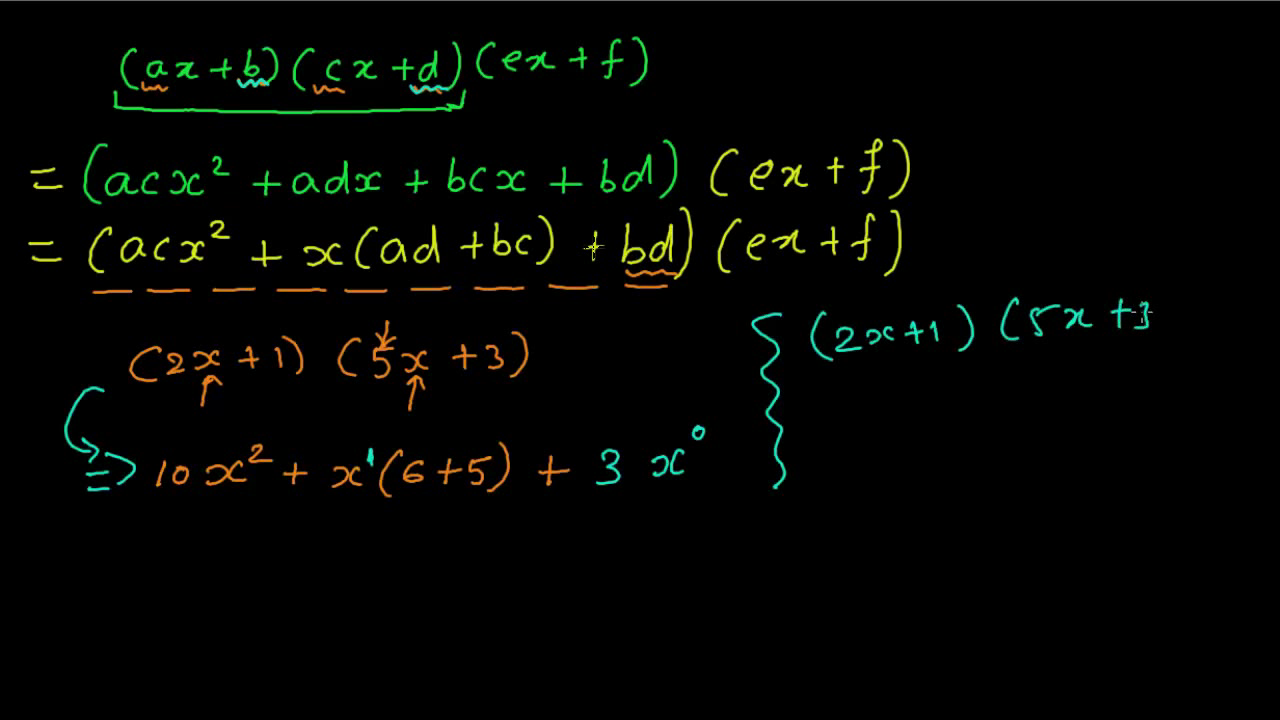 (ax+b)(cx+d)(ex+f)
= (acx² + adx + bcx + bd) (ex+f)
= (acx² + x(ad+bc) + bd) (ex+f)
(2x+1) (5x+3)
(2x+1) (5x+3
⇒ 10x² + x¹(6+5) + 3x⁰